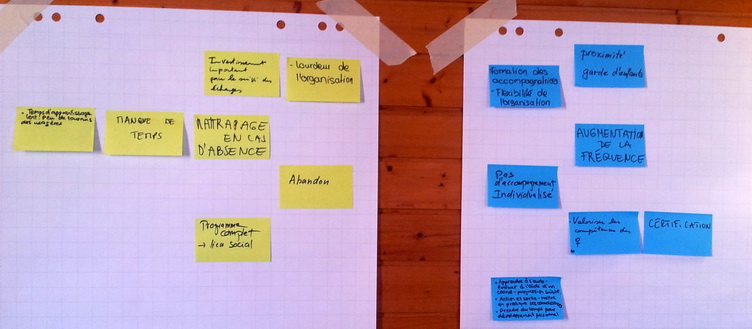 Investissement
important
pour le suivi des
échanges
- Lourdeur de
l'organisation
- Temps d'apprentissage
MANQUE DE
TEMPS
RATTRAPAGE
EN CAS
D'ABSENCE
Abandon
Programme
complet
→ lien social
Formation des
accompagnatrices
- Flexibilité de
l'organisation
proximité
garde d'enfants
AUGMENTATION
DE LA
FRÉQUENCE
Pas
d'accompagnement
Individualisé
- Valoriser les
compétences des
♀
CERTIFICATION